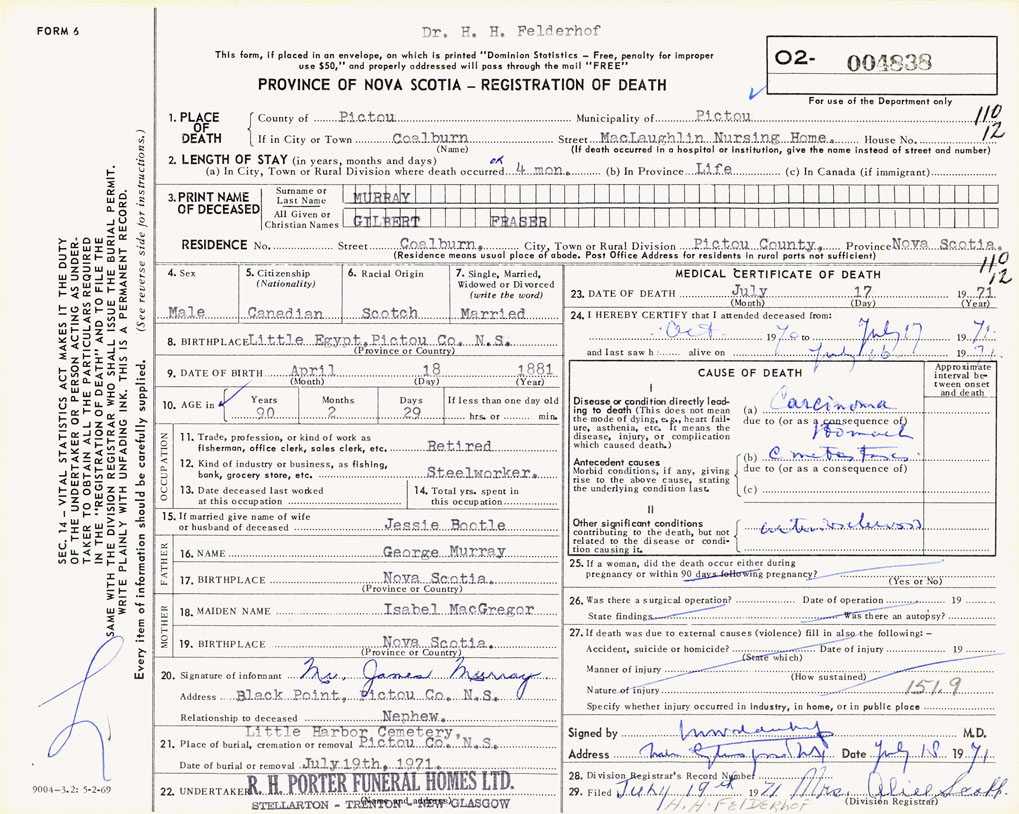 FORM 6
Dr. H. H. Felderhof
This form, if placed in an envelope, on which is printed "Dominion Statistics – Free, penalty for improper
use $50," and properly addressed will pass through the mail "FREE"
PROVINCE OF NOVA SCOTIA – REGISTRATION OF DEATH
O2- 004838
For use of the Department only
110
12
1. PLACE OF DEATH
County of Pictou Municipality of Pictou
If in City or Town Coalburn Street MacLaughlin Nursing Home. House No.
(Name) (If death occurred in a hospital or institution, give the name instead of street and number)
2. LENGTH OF STAY (in years, months and days) OK
(a) In City, Town or Rural Division where death occurred 4 mon. (b) In Province Life (c) In Canada (if immigrant)
3. PRINT NAME OF DECEASED
Surname or Last Name MURRAY
All Given or Christian Names GILBERT FRASER
RESIDENCE No. Street Coalburn, City, Town or Rural Division Pictou County, Province Nova Scotia.
(Residence means usual place of abode. Post Office Address for residents in rural parts not sufficient)
110
12
4. Sex
Male
5. Citizenship
(Nationality)
Canadian
6. Racial Origin
Scotch
7. Single, Married,
Widowed or Divorced
(write the word)
Married
8. BIRTHPLACE Little Egypt, Pictou Co. N.S.
(Province or Country)
9. DATE OF BIRTH April 18 1881
(Month) (Day) (Year)
10. AGE in Years Months Days If less than one day old
90 2 29 hrs. or min.
OCCUPATION
11. Trade, profession, or kind of work as
fisherman, office clerk, sales clerk, etc. Retired
12. Kind of industry or business, as fishing,
bank, grocery store, etc. Steelworker.
13. Date deceased last worked
at this occupation
14. Total yrs. spent in
this occupation
15. If married give name of wife
or husband of deceased Jessie Bootle
FATHER
16. NAME George Murray
17. BIRTHPLACE Nova Scotia.
(Province or Country)
MOTHER
18. MAIDEN NAME Isabel MacGregor
19. BIRTHPLACE Nova Scotia.
(Province or Country)
20. Signature of informant Mr. James Murray
Address Black Point, Pictou Co. N.S.
Relationship to deceased Nephew.
Little Harbor Cemetery,
21. Place of burial, cremation or removal Pictou Co. N.S.
Date of burial or removal July 19th, 1971.
22. UNDERTAKER R. H. PORTER FUNERAL HOMES LTD.
(Name and address)
STELLARTON - TRENTON - NEW GLASGOW
MEDICAL CERTIFICATE OF DEATH
23. DATE OF DEATH July 17 1971
(Month) (Day) (Year)
24. I HEREBY CERTIFY that I attended deceased from:
Oct 1970 to July 17 1971
and last saw h alive on July 16 1971
CAUSE OF DEATH
Approximate interval between onset and death
I
Disease or condition directly leading to death (This does not
mean the mode of dying, e.g., heart failure, asthenia, etc. It means the
disease, injury, or complication
which caused death.)
(a) Carcinoma
due to (or as a consequence of)
stomach
Antecedent causes
Morbid conditions, if any, giving
rise to the above cause, stating
the underlying condition last.
(b) c metastases
due to (or as a consequence of)
(c)
II
Other significant conditions
contributing to the death, but not
related to the disease or condition causing it.
arteriosclerosis
25. If a woman, did the death occur either during
pregnancy or within 90 days following pregnancy?
(Yes or No)
26. Was there a surgical operation? Date of operation 19
State findings Was there an autopsy?
27. If death was due to external causes (violence) fill in also the following: –
Accident, suicide or homicide? Date of injury 19
(State which)
Manner of injury
(How sustained)
Nature of injury 151.9
Specify whether injury occurred in industry, in home, or in public place
Signed by M.D.
Address Date July 18 1971
28. Division Registrar's Record Number
29. Filed July 19th 1971 Mrs. Alice Scott
H. H. FELDERHOF (Division Registrar)
SEC. 14 – VITAL STATISTICS ACT MAKES IT THE DUTY
OF THE UNDERTAKER OR PERSON ACTING AS UNDER-
TAKER TO OBTAIN ALL THE PARTICULARS REQUIRED
IN THE "REGISTRATION OF DEATH" AND TO FILE THE
SAME WITH THE DIVISION REGISTRAR WHO SHALL ISSUE THE BURIAL PERMIT.
WRITE PLAINLY WITH UNFADING INK. THIS IS A PERMANENT RECORD.
Every item of information should be carefully supplied. (See reverse side for instructions.)
9004–3.2: 5-2-69